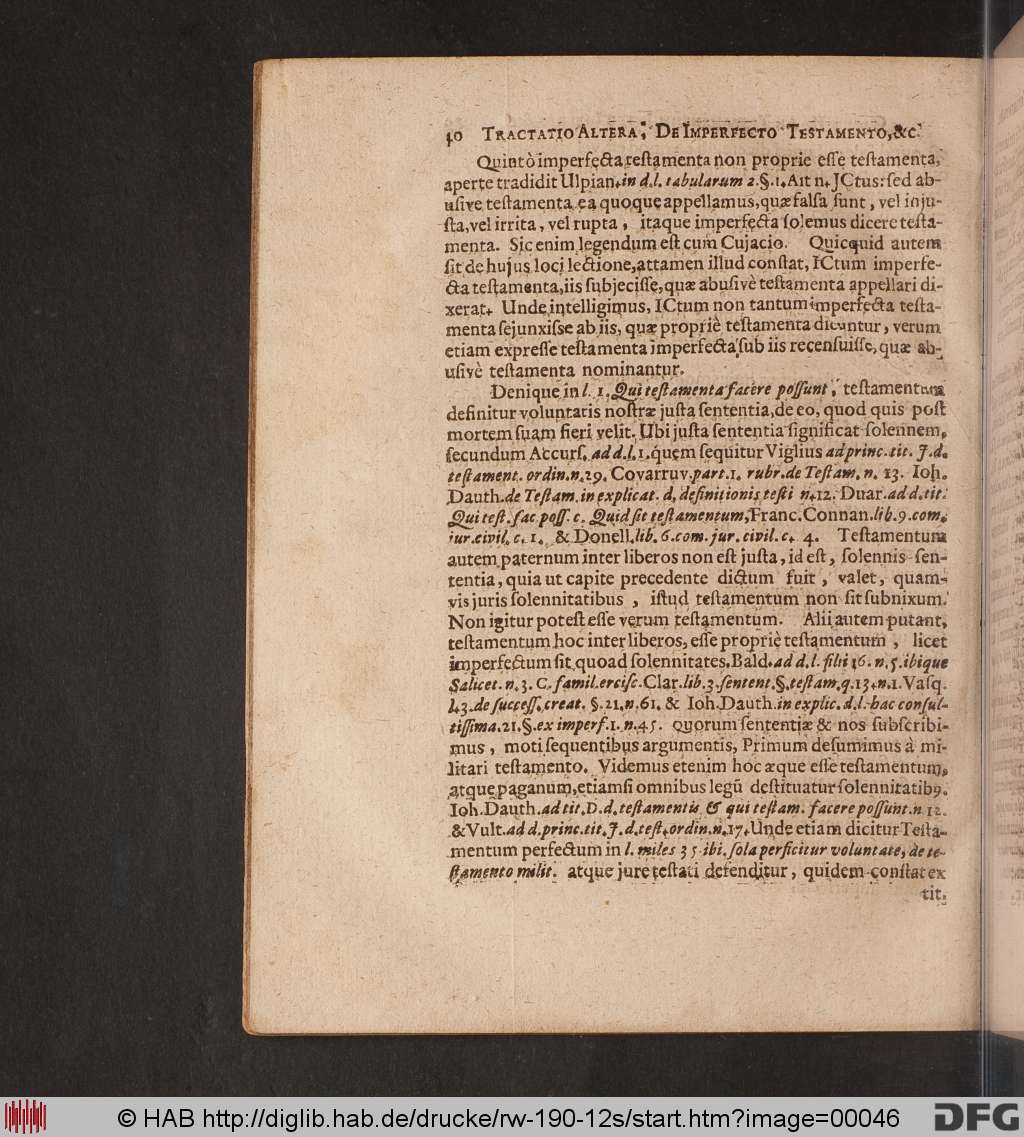 40 TRACTATIO ALTERA, DE IMPERFECTO TESTAMENTO, &c.
Quintò imperfecta testamenta non proprie esse testamenta,
aperte tradidit Ulpian. in d. l. tabularum 2. §. 1. Ait n. JCtus: sed ab-
usive testamenta ea quoque appellamus, quæ falsa sunt, vel inju-
sta, vel irrita, vel rupta, itaque imperfecta solemus dicere testa-
menta. Sic enim legendum est cum Cujacio. Quicquid autem
sit de hujus loci lectione, attamen illud constat, ICtum imperfe-
cta testamenta, iis subjecisse, quæ abusivè testamenta appellari di-
xerat. Unde intelligimus, ICtum non tantum imperfecta testa-
menta sejunxisse ab iis, quæ propriè testamenta dicuntur, verum
etiam expresse testamenta imperfecta sub iis recensuisse, quæ ab-
usivè testamenta nominantur.
Denique in l. 1. Qui testamenta facere possunt, testamentum
definitur voluntatis nostræ justa sententia, de eo, quod quis post
mortem suam fieri velit. Ubi justa sententia significat solennem,
secundum Accurs. ad d. l. 1. quem sequitur Viglius ad princ. tit. J. d.
testament. ordin. n. 29. Covarruv. part. 1. rubr. de Testam. n. 13. Ioh.
Dauth. de Testam. in explicat. d. definitionis testi n. 12. Duar. ad d. tit.
Qui test. fac poss. c. Quid sit testamentum, Franc. Connan. lib. 9. com.
jur. civil. c. 1. & Donell. lib. 6. com. jur. civil. c. 4. Testamentum
autem paternum inter liberos non est justa, id est, solennis sen-
tentia, quia ut capite precedente dictum fuit, valet, quam-
vis juris solennitatibus, istud testamentum non sit subnixum.
Non igitur potest esse verum testamentum. Alii autem putant,
testamentum hoc inter liberos, esse propriè testamentum, licet
imperfectum sit quoad solennitates. Bald. ad d. l. filii 16. n. 5. ibique
Salicet. n. 3. C. famil. ercisc. Clar. lib. 3. sentent. §. testam. q. 13. n. 1. Vasq.
l. 3. de success. creat. §. 21. n. 61. & Ioh. Dauth. in explic. d. l. hac consul-
tissima. 21. §. ex imperf. 1. n. 45. quorum sententiæ & nos subscribi-
mus, moti sequentibus argumentis, Primum desumimus à mi-
litari testamento. Videmus etenim hoc æque esse testamentum,
atque paganum, etiamsi omnibus legū destituatur solennitatibꝰ.
Ioh. Dauth. ad tit. D. d. testamentis & qui testam. facere possunt. n. 12.
& Vult. ad d. princ. tit. J. d. test. ordin. n. 17. Unde etiam dicitur Testa-
mentum perfectum in l. miles 35 ibi. sola perficitur voluntate, de te-
stamento milit. atque jure testati defenditur, quidem constat ex
tit.
© HAB http://diglib.hab.de/drucke/rw-190-12s/start.htm?image=00046
DFG